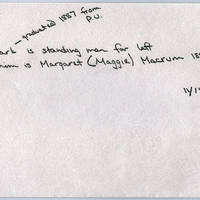 — graduated 1887 from
P.U.
ark is standing man far left
um is Margaret (Maggie) Macrum 18
11/1